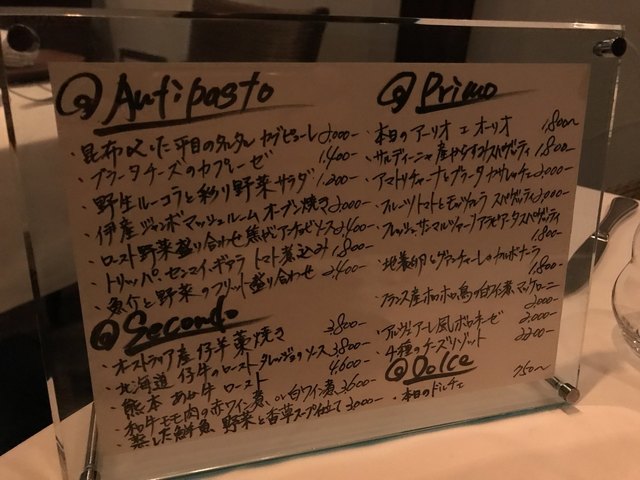 @ Antipasto
・昆布〆した平目のタルタル カブピューレ 2,000-
・ブラータチーズのカプレーゼ 1,400-
・野生ルーコラと彩り野菜サラダ 1,200-
・伊産ジャンボマッシュルーム オーブン焼き 2,000-
・ロースト野菜盛り合わせ 焦がしアンチョビソース 2,400-
・トリッパ、センマイ、ギアラ トマト煮込み 1,800-
・魚介と野菜のフリット盛り合わせ 2,400-
@ Secondo
・オーストラリア産 仔羊 藁焼き 3,800-
・北海道 仔牛のロースト タレッジョソース 3,800-
・熊本 あか牛 ロースト 4,600-
・和牛モモ肉の赤ワイン煮、or 白ワイン煮 3,600-
・蒸した鮮魚 野菜と香草スープ仕立て 3,000-
@ Primo
・本日のアーリオ エ オーリオ 1,800~
・サルディーニャ産からすみスパゲティ 1,800-
・アマトリチャーナ ブラータ 2,000-
・フルーツトマトとモッツァレラ スパゲティ 2,000-
・フレッシュサンマルツァーノ アラビアータ スパゲティ 1,800-
・地養卵とグアンチャーレのカルボナーラ 1,800-
・フランス産ホロホロ鳥の白ワイン煮 マッケローニ 2,000-
・アルヴェアーレ風ボロネーゼ 2,000-
・4種のチーズリゾット 2,200-
@ Dolce
・本日のドルチェ 750~